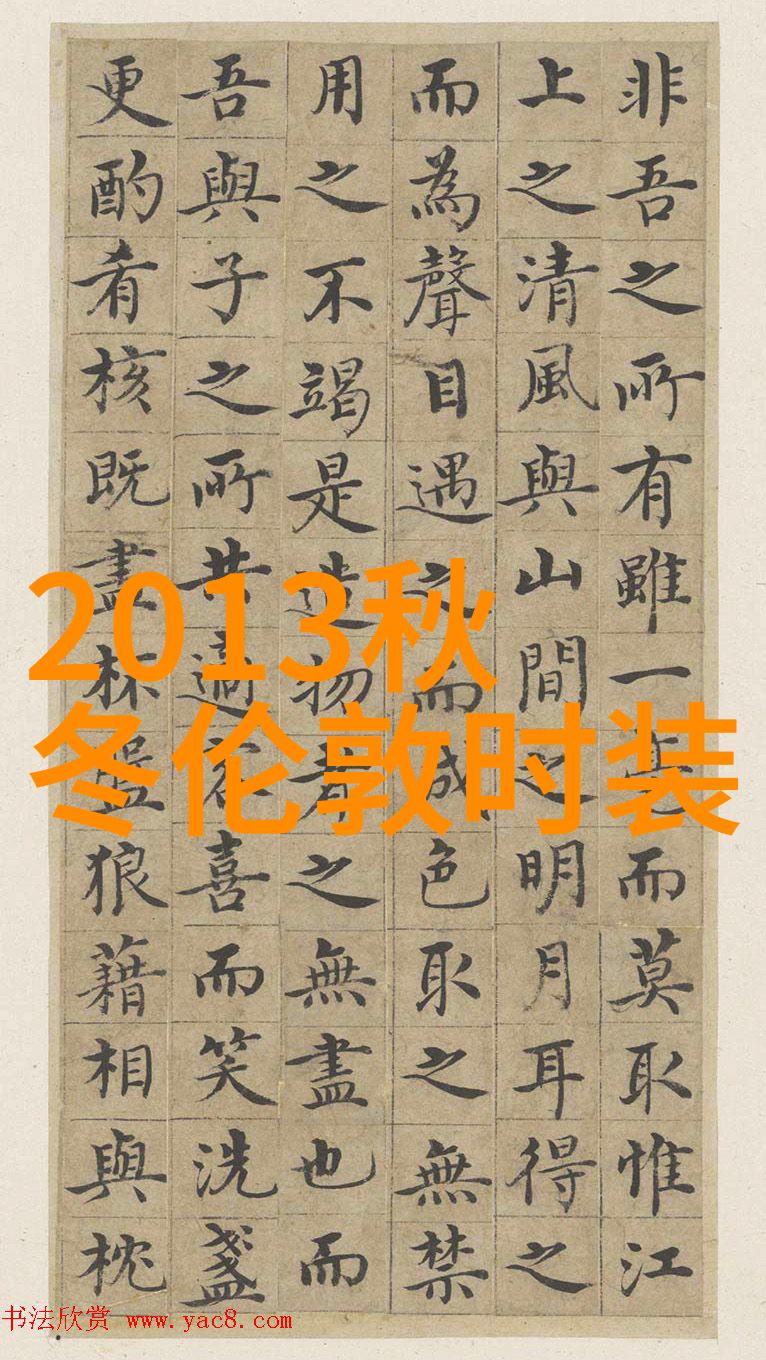 非吾之所有雖一毫而莫取惟江
上之清風與山間之明月耳得之
而為聲目遇之而成色取之無禁
用之不竭是造物者之無盡也而
吾與子之所共適客喜而笑洗盞
更酌肴核既盡杯盤狼藉相與枕
2013秋
冬伦敦时装
书法欣赏 www.yac8.com